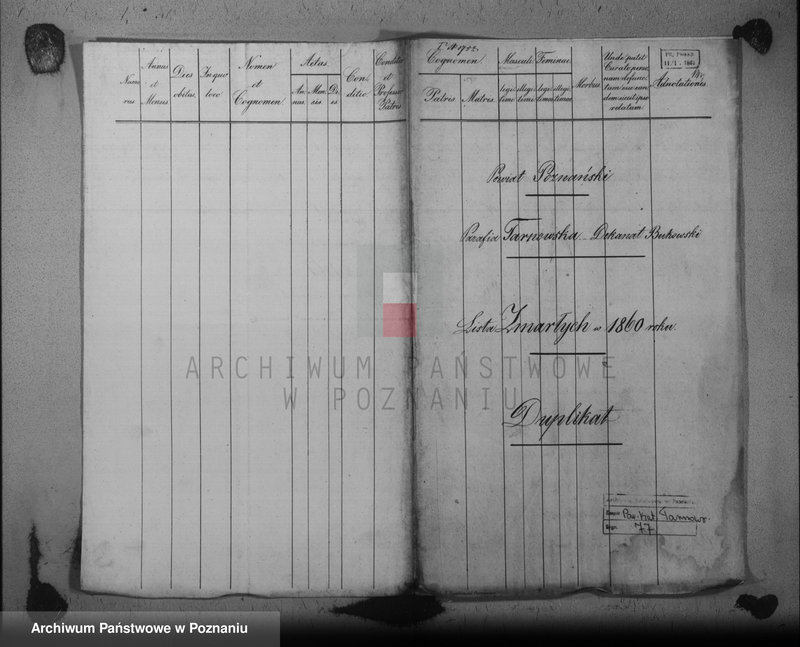 Nume
rus
Annus
et
Mensis
Dies
obitus
In quo
loco
Nomen
et
Cognomen
Aetas
An
nus
Men
sis
Di
es
Con
ditio
Conditio
et
Professio
Patris
Cognomen
Patris
Matris
Masculi
legi
timi
illegi
timi
Feminae
legi
timae
illegi
timae
Morbus
Unde patet
Curato perso
nam defunc
tam
relatam
Adnotationes
Powiat Poznański
Parafia Tarnowska - Dekanat Bukowski
Lista Zmarłych w 1860 roku
Duplikat
Par. kat. Tarnowo
77
ARCHIWUM PAŃSTWOWE
W POZNANIU
Archiwum Państwowe w Poznaniu